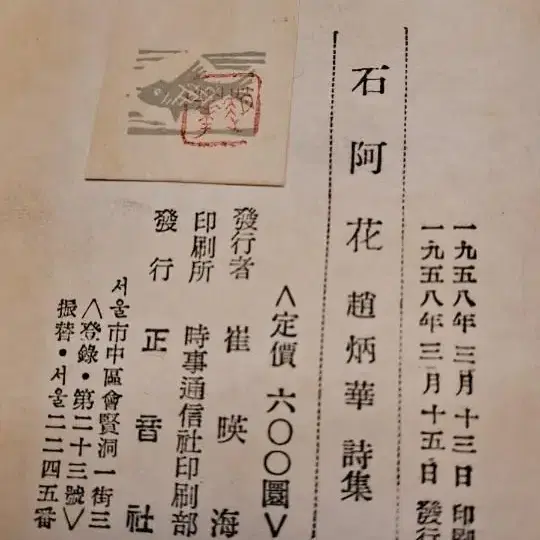 一九五八年 三月十三日 印刷
一九五八年 三月十五日 發行
石阿花 趙炳華 詩集
<定價 六〇〇圜>
發行者 崔暎海
印刷所 時事通信社印刷部
發行 正音社
서울市中區會賢洞一街三
<登錄・第二十三號>
振替・서울二二四五番